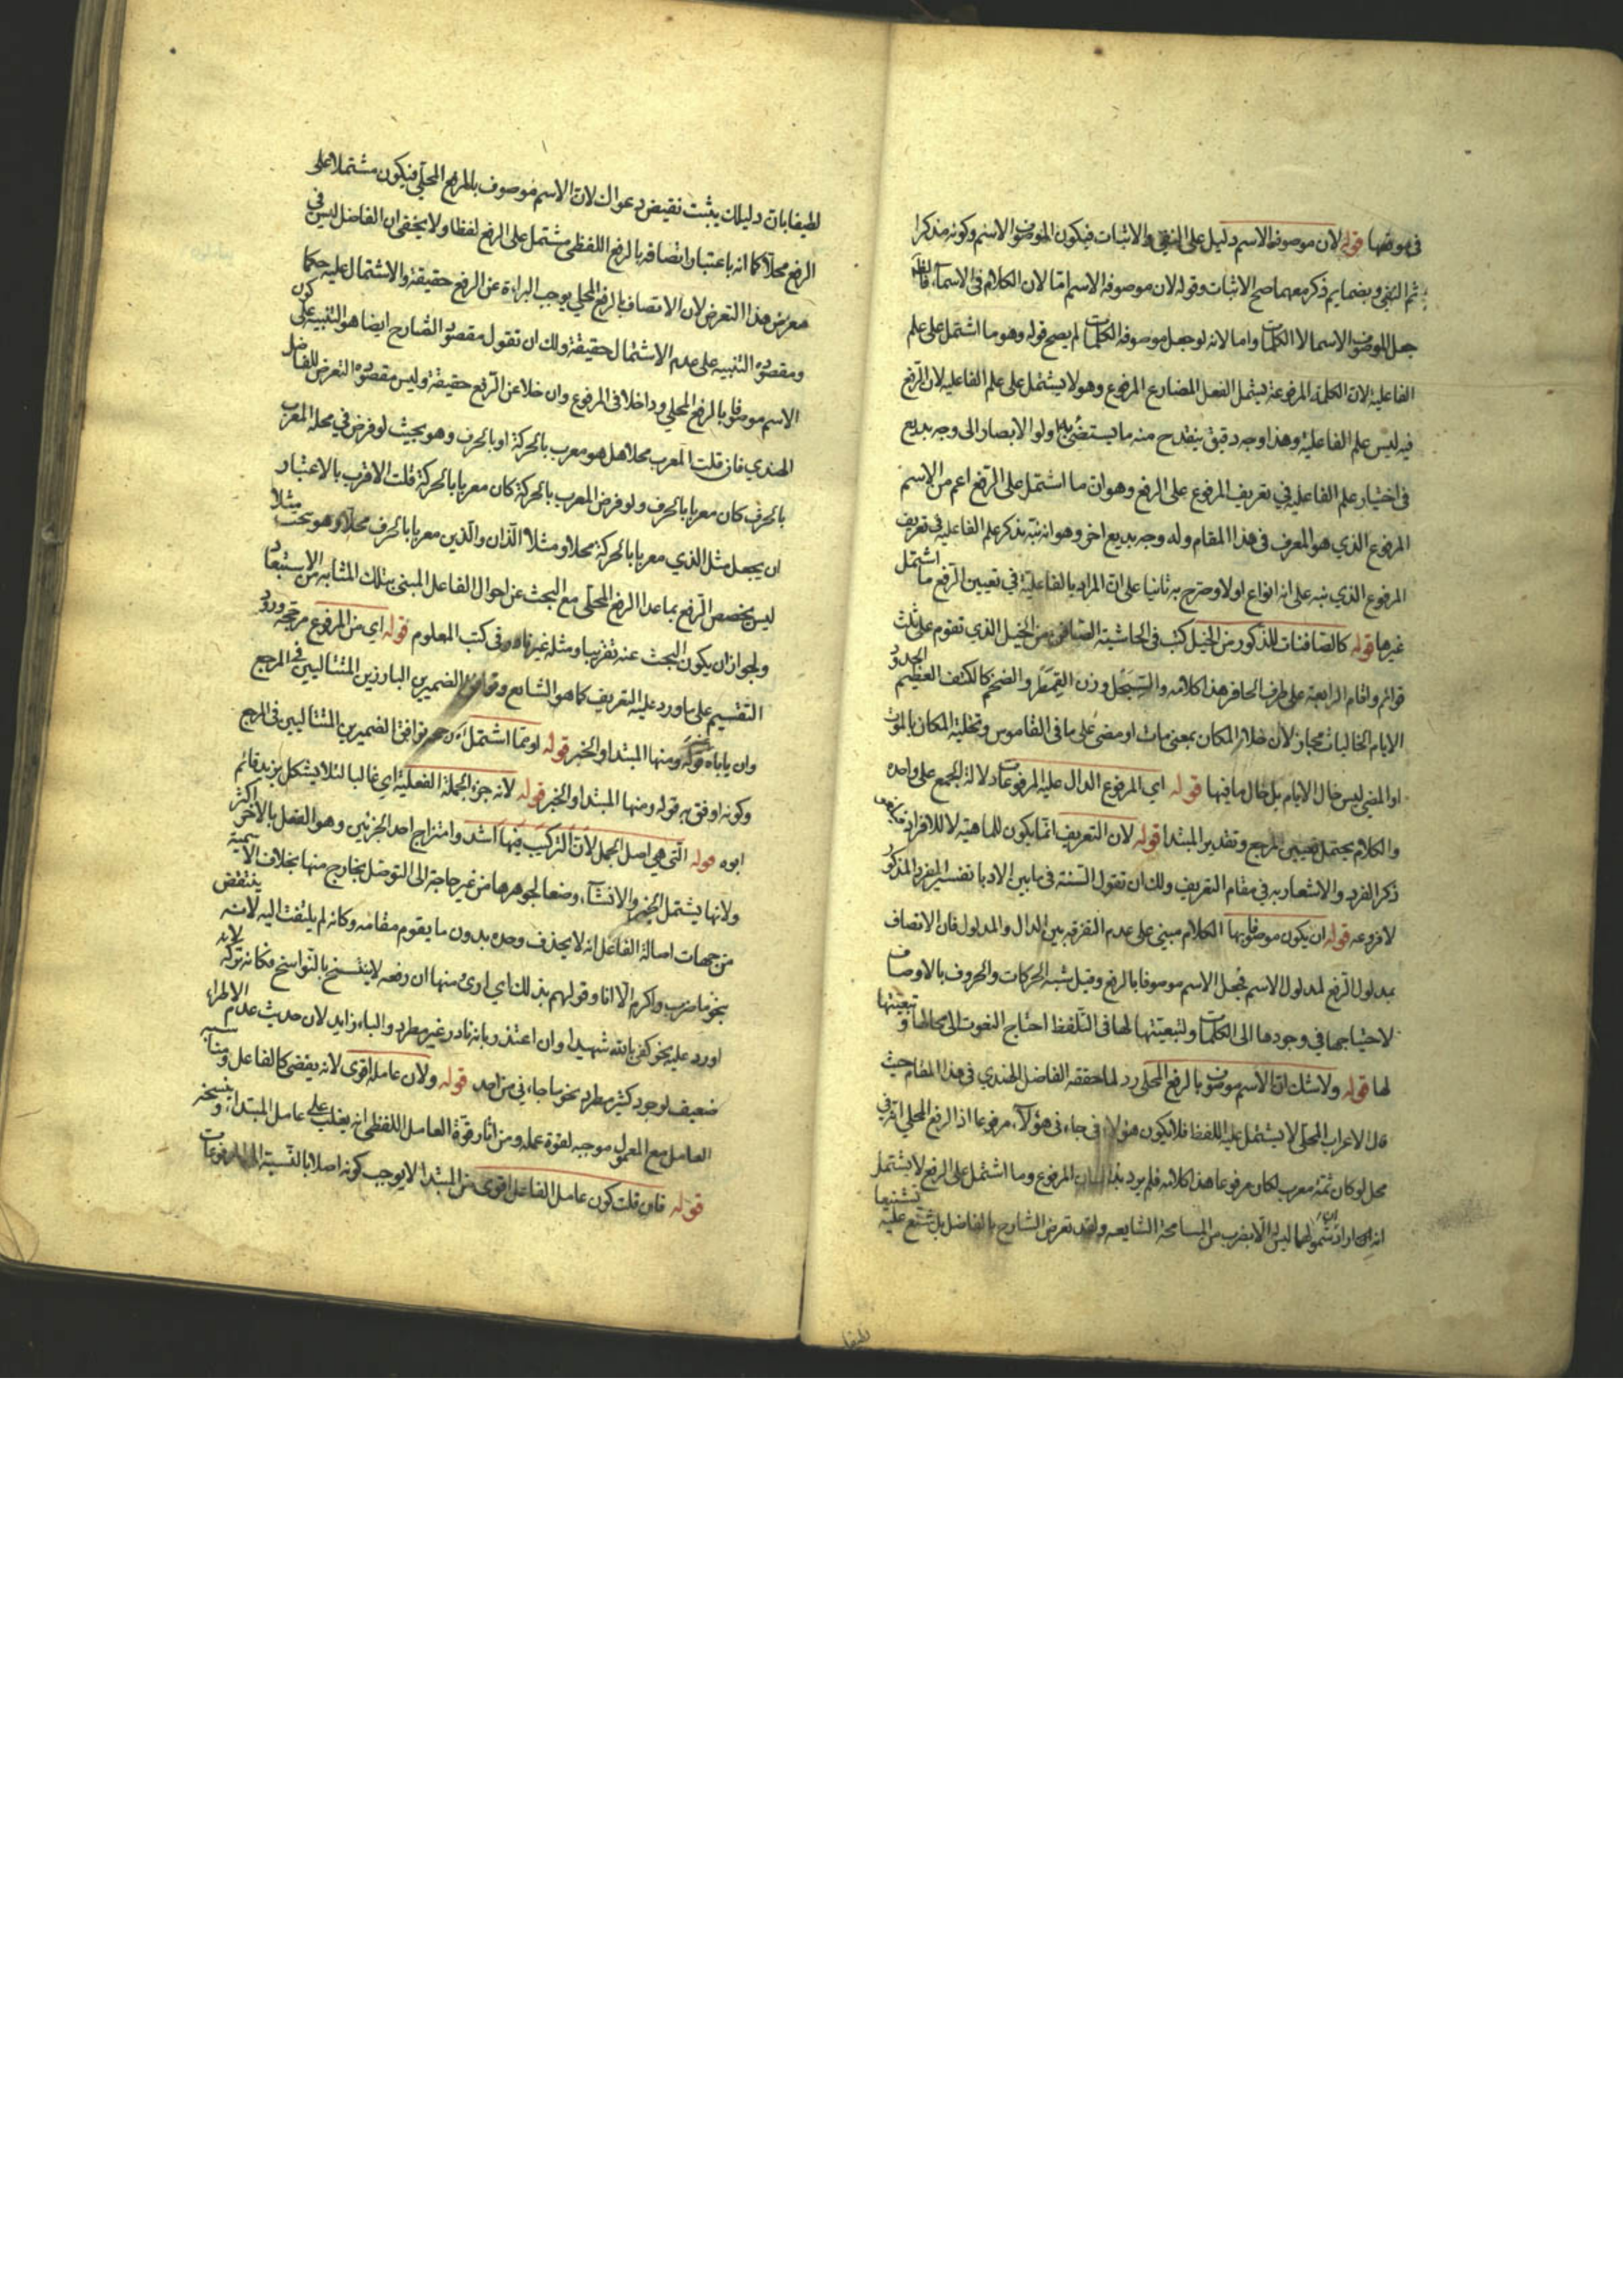 في موقعها قوله لان موصوفه الاسم دليل على النفي والاثبات فيكون الموصوف الاسم وكونه مذكرا
ثم النفي وبضمايم ذكر معهما صح الاثبات وقوله لان موصوفه الاسم اما لان الكلام في الاسماء
جعل الموصوف الاسما لا الكلمات واما لانه لو جعل موصوفه الكلمات لم يصح قوله وهو ما اشتمل على علم
الفاعلية لان الكلمة المرفوعة يشتمل الفعل المضارع المرفوع وهو لا يشتمل على علم الفاعليه لان الرفع
فيه ليس علم الفاعلية وهذا وجه دقيق ينقدح منه ما يستضئ به اولوا الابصار الى وجه بديع
في اختيار علم الفاعليه في تعريف المرفوع على الرفع وهو ان ما اشتمل على الرفع اعم من الاسم
المرفوع الذي هو المعرف في هذا المقام وله وجه بديع اخر وهو انه نبه بذكر علم الفاعليه في تعريف
المرفوع الذي نبه على انه انواع اولا وصرح به ثانيا على ان المراد بالفاعلية في تعيين الرفع ما اشتمل
غيرها قوله كالصافنات للذكور من الخيل كتب في الحاشية الصافن من الخيل الذي تقوم على ثلث
قوائم واقام الرابعة على طرف الحافر هذا كلامه والسبحل وزن القمطر والضخم كالكتف العظيم
الايام الخاليات مجاز لان خلا المكان بمعنى مات او مضى على ما في القاموس وتخلية المكان بالموت
او المضي ليس حال الايام بل حال ما فيها قوله اي المرفوع الدال عليه المرفوعات دلالة الجمع على واحده
والكلام يحتمل تعيين المرجع وتقدير المبتدا قوله لان التعريف انما يكون للماهية لا للافراد
ذكر الفرد والاشعار به في مقام التعريف ولك ان تقول السنة في ما بين الادبا تفسير المفرد المذكور
لا فروعه قوله ان يكون موصوفا بها الكلام مبني على عدم التفرقه بين الدال والمدلول فان الاتصاف
بمدلول الرفع لمدلول الاسم فجعل الاسم موصوفا بالرفع وقيل شبه الحركات والحروف بالاوصاف
لاحتياجها في وجودها الى الكلمات ولتبعيتها لها في التلفظ احتاج النعوت الى محالها وتبعيتها
لها قوله ولا شك ان الاسم موصوف بالرفع المحلي رد لما حققه الفاضل الهندي في هذا المقام حيث
قال الاعراب المحلي لا يشتمل عليه اللفظ فلا يكون هؤلاء في جاءني هؤلاء مرفوعا اذ الرفع المحلي انه في
محل لو كان ثمة معرب لكان مرفوعا هذا كلامه فلم يرد بذلك المرفوع وما اشتمل على الرفع لا يشتمله
انه ان اراد شمولهما ليس الا بضرب من المسامحة الشايعه ولقد تعرض الشارح بالفاضل بل شنع عليه تشنيعا
لطيفا
لطيفا بان دليلك يثبت نقيض دعواك لان الاسم موصوف بالرفع المحلي فيكون مشتملا على
الرفع محلا كما انه باعتبار اتصافه بالرفع اللفظي مشتمل على الرفع لفظا ولا يخفى ان الفاضل ليس في
معرض هذا التعرض لان الاتصاف بالرفع المحلي يوجب البراءة عن الرفع حقيقة والاشتمال عليه حكما
ومقصوده التنبيه على عدم الاشتمال حقيقة ولك ان تقول مقصود الشارح ايضا هو التنبيه على كون
الاسم موصوفا بالرفع المحلي وداخلا في المرفوع وان خلا عن الرفع حقيقة وليس مقصوده التعرض للفاضل
الهندي فان قلت المعرب محلا هل هو معرب بالحركة او بالحرف وهو بحيث لو فرض في محله المعرب
بالحرف كان معربا بالحرف ولو فرض المعرب بالحركة كان معربا بالحركة قلت الاقرب بالاعتبار
ان يجعل مثل الذي معربا بالحركة محلا ومثلا اللذان والذين معربا بالحرف محلا وهو بحث
ليس يخصص الرفع بما عدا الرفع المحلي مع البحث عن احوال الفاعل المبني بتلك المثابه من الاستبعاد
ولجواز ان يكون البحث عنه تقريبا ومثله غير نادر في كتب المعلوم قوله اي من المرفوع مرجحه ورود
التقسيم على ما ورد عليه التعريف كما هو الشايع وتوافق الضميرين البارزين المتتاليين في المرجع
وان ياباه قوله ومنها المبتدا والخبر قوله او مما اشتمل توافق الضميرين المتتاليين في المرجع
وكونه اوفق به قوله ومنها المبتدا والخبر قوله لانه جزء الجملة الفعلية اي غالبا لئلا يشكل بزيد قائم
ابوه قوله التي هي اصل الجمل لان التركيب فيها اشد وامتزاج احد الجزئين وهو الفعل بالاخر اكثر
ولانها يشتمل الخبر والانشاء وضعا لجوهرها من غير حاجة الى التوصل بخارج منها بخلاف الاسمية
من جهات اصالة الفاعل انه لا يحذف وحده بدون ما يقوم مقامه وكانه لم يلتفت اليه لانه ينتقض
بنحو ما ضرب واكرم الا انا وقولهم بذلك اي اوى منها ان رفعه لا ينتسخ بالنواسخ فكانه تركه لانه
اورد عليه نحو كفى بالله شهيدا وان اعتذر بانه نادر غير مطرد والباء زايد لان حديث عدم الاطراد
ضعيف لوجود كثير مطرد نحو ما جاءني من احد قوله ولان عامله اقوى لانه يقتضي كالفاعل ومناسبه
العامل مع المعمول موجبه لقوة عمله ومن اثار قوة العامل اللفظي انه يغلب على عامل المبتدا وينسخه
قوله فان قلت كون عامل الفاعل اقوى من المبتدا لا يوجب كونه اصلا بالنسبة الى المرفوعات